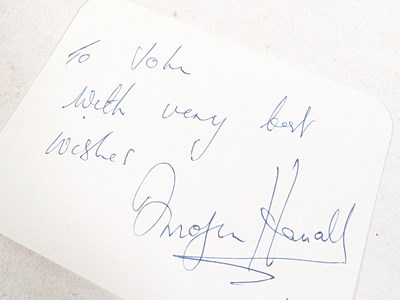 To John
With very best
wishes
Imogen Hassall